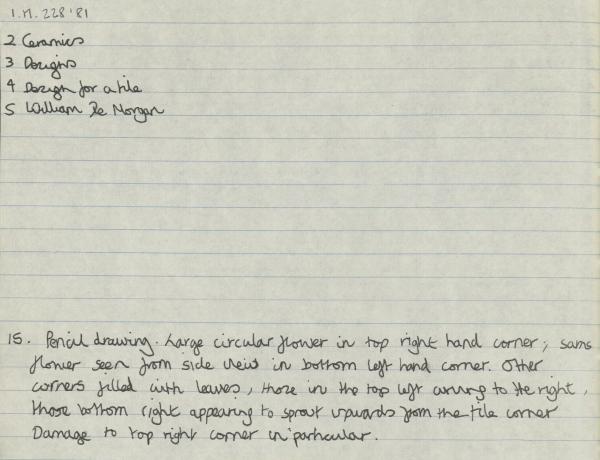 I.M. 228 '81
2 Ceramics
3 Designs
4 Design for a tile
5 William De Morgan
15. Pencil drawing. Large circular flower in top right hand corner; same
flower seen from side view in bottom left hand corner. Other
corners filled with leaves, those in the top left curving to the right,
those bottom right appearing to sprout upwards from the tile corner
Damage to top right corner in particular.